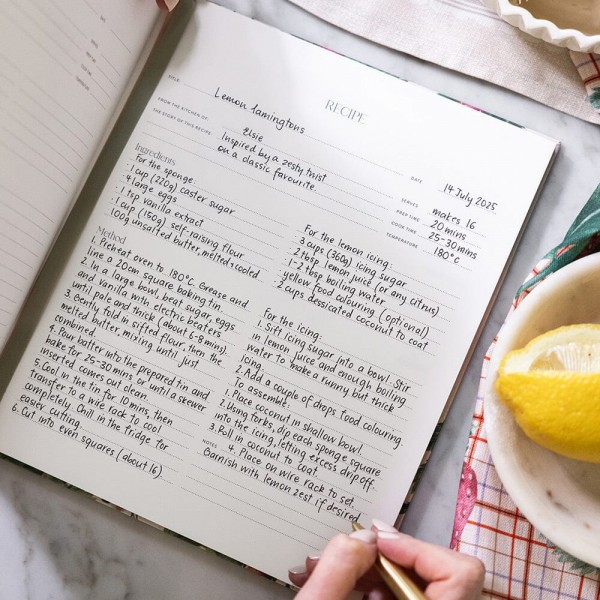 RECIPE
TITLE
Lemon lamingtons
FROM THE KITCHEN OF:
Elsie
THE STORY OF THIS RECIPE
Inspired by a zesty twist
on a classic favourite.
DATE
14 July 2025
SERVES
makes 16
PREP TIME
20 mins
COOK TIME
25-30 mins
TEMPERATURE
180°c
Ingredients
For the sponge:
1 cup (220g) caster sugar
4 large eggs
1 tsp vanilla extract
1 cup (150g) self-raising flour
100g unsalted butter, melted & cooled
For the lemon icing:
3 cups (360g) icing sugar
2 tbsp lemon juice (or any citrus)
1-2 tbsp boiling water
yellow food colouring (optional)
2 cups dessicated coconut to coat
Method
1. Preheat oven to 180°C. Grease and
line a 20cm square baking tin.
2. In a large bowl, beat sugar, eggs
and vanilla with electric beaters
until pale and thick (about 6-8 mins).
3. Gently fold in sifted flour, then the
melted butter, mixing until just
combined.
4. Pour batter into the prepared tin and
bake for 25-30 mins, or until a skewer
inserted comes out clean.
5. Cool in the tin for 10 mins, then
transfer to a wire rack to cool
completely. Chill in the fridge for
easier cutting.
6. Cut into even squares (about 16).
For the icing:
1. Sift icing sugar into a bowl. Stir
in lemon juice and enough boiling
water to make a runny but thick
icing.
2. Add a couple of drops food colouring
To assemble:
1. Place coconut in shallow bowl.
2. Using forks, dip each sponge square
into the icing, letting excess drip off.
3. Roll in coconut to coat.
NOTES
4. Place on wire rack to set.
Garnish with lemon zest if desired